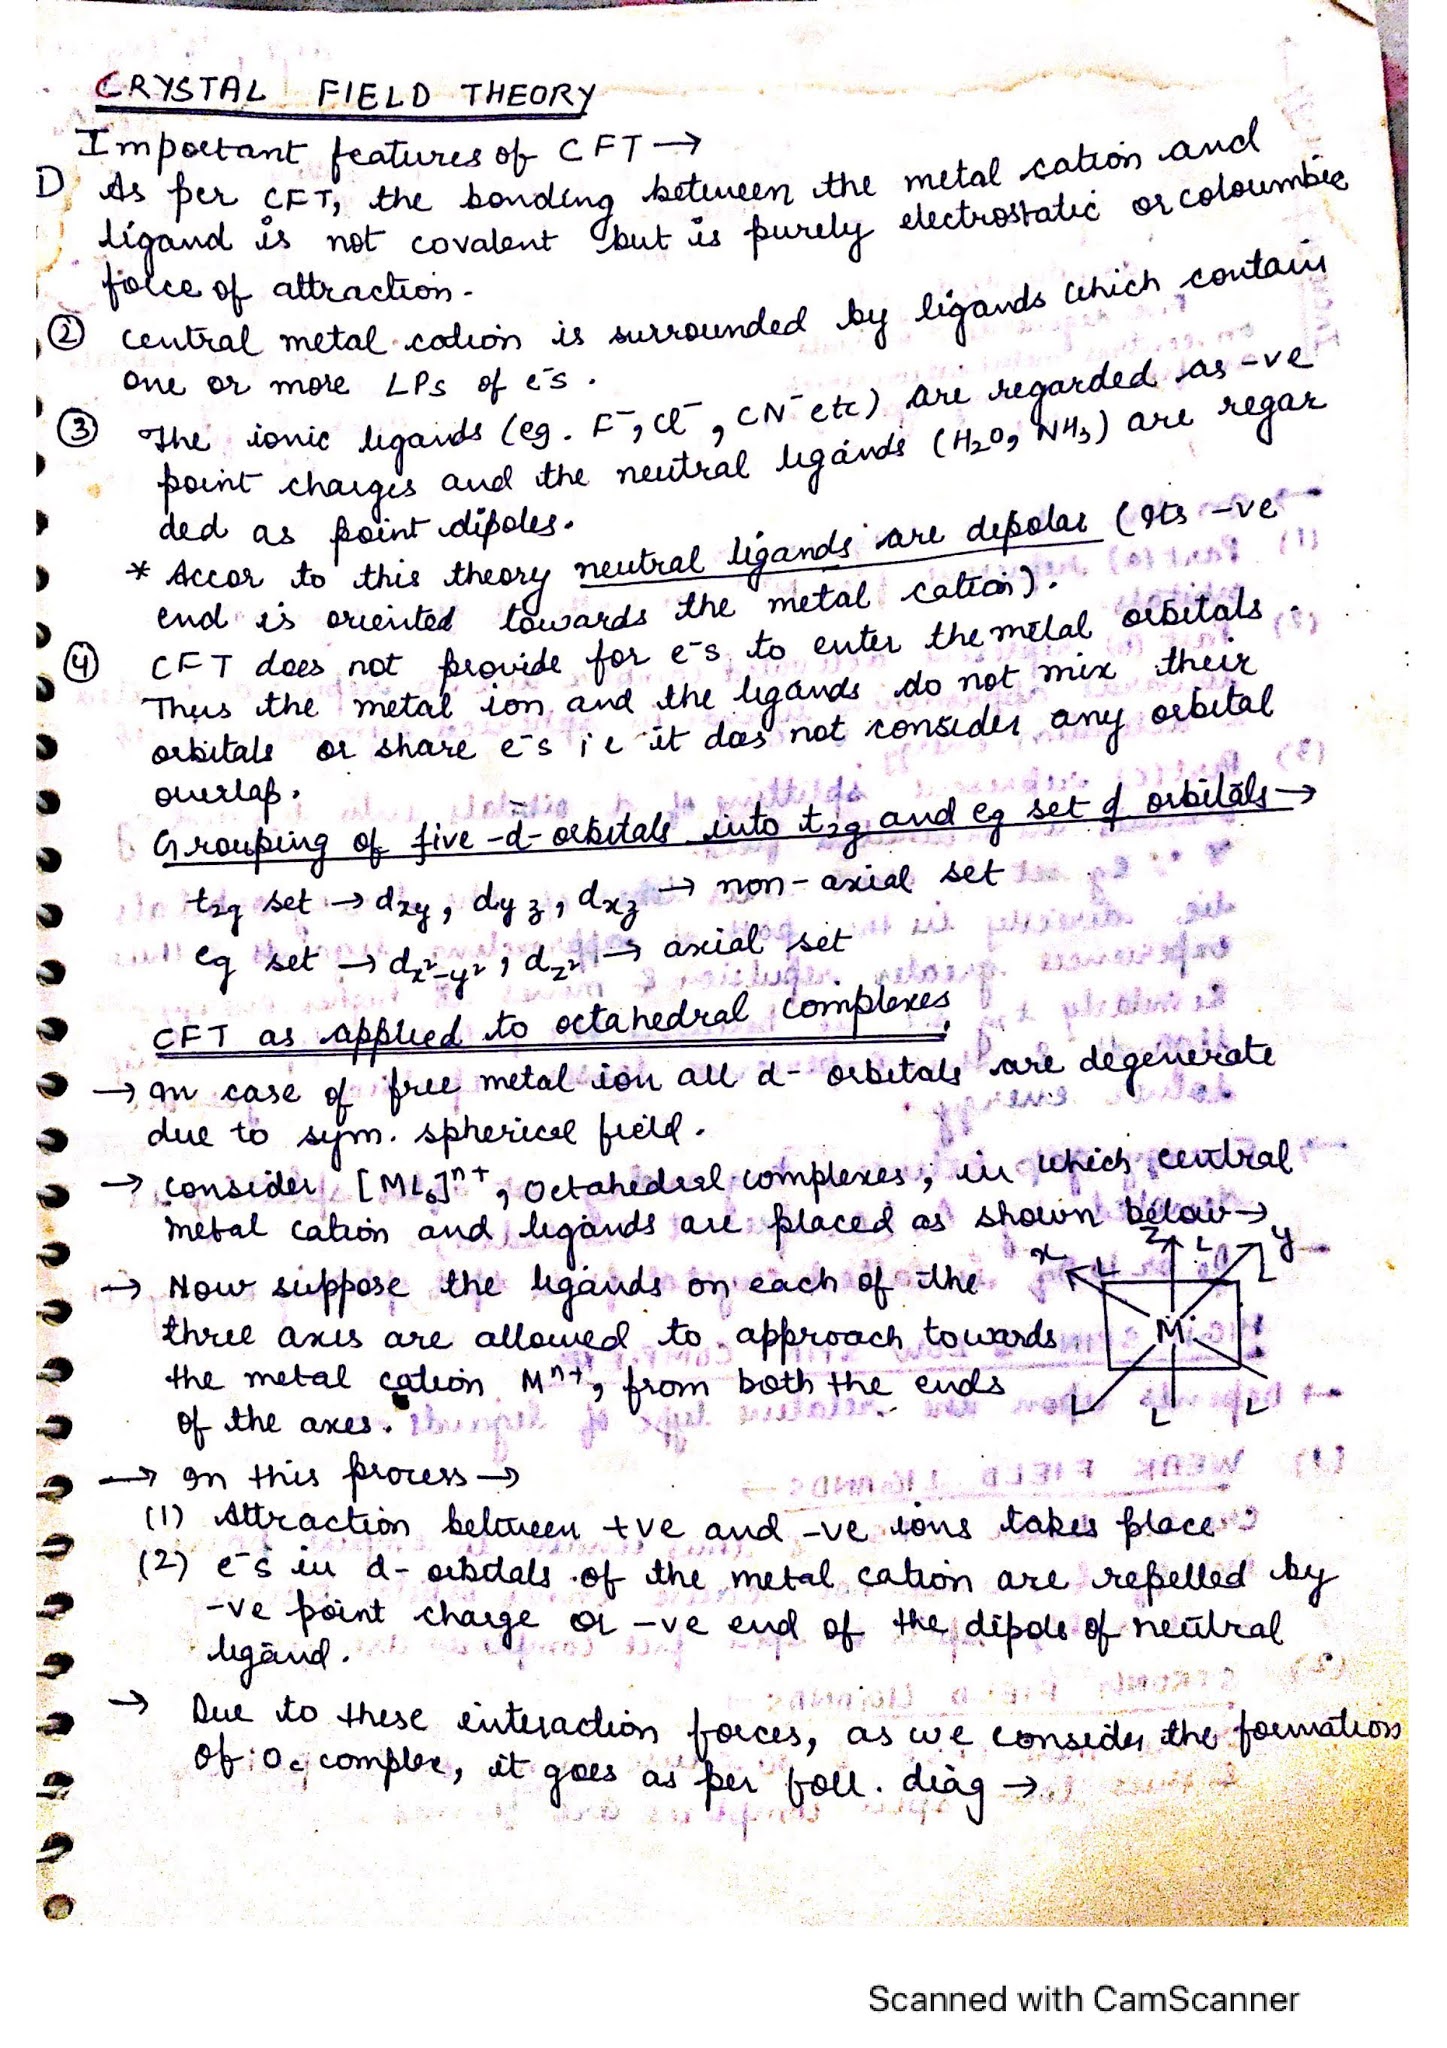 CRYSTAL FIELD THEORY
Important features of CFT →
1) As per CFT, the bonding between the metal cation and
ligand is not covalent but is purely electrostatic or coloumbic
force of attraction.
② central metal cation is surrounded by ligands which contain
one or more LPs of e⁻s.
③ The ionic ligands (eg. F⁻, Cl⁻, CN⁻ etc) are regarded as -ve
point charges and the neutral ligands (H₂O, NH₃) are regar
ded as point dipoles.
* Accor to this theory neutral ligands are depolar (Its -ve
end is oriented towards the metal cation).
④ CFT does not provide for e⁻s to enter the metal orbitals.
Thus the metal ion and the ligands do not mix their
orbitals or share e⁻s i.e it does not consider any orbital
overlap.
Grouping of five -d- orbitals into t₂g and eg set of orbitals →
t₂g set → dxy, dyz, dxz → non-axial set
eg set → dx²-y², dz² → axial set
CFT as applied to octahedral complexes,
→ In case of free metal ion all d- orbitals are degenerate
due to sym. spherical field.
→ consider [ML₆]ⁿ⁺, octahedral complexes, in which central
metal cation and ligands are placed as shown below →
x L z L y L
→ Now suppose the ligands on each of the
three axes are allowed to approach towards
M
the metal cation Mⁿ⁺, from both the ends
of the axes.
L L L
→ In this process →
(1) Attraction between +ve and -ve ions takes place
(2) e⁻s in d- orbitals of the metal cation are repelled by
-ve point charge or -ve end of the dipole of neutral
ligand.
→ Due to these interaction forces, as we consider the formation
of Oc comple, it goes as per foll. diag →
Scanned with CamScanner